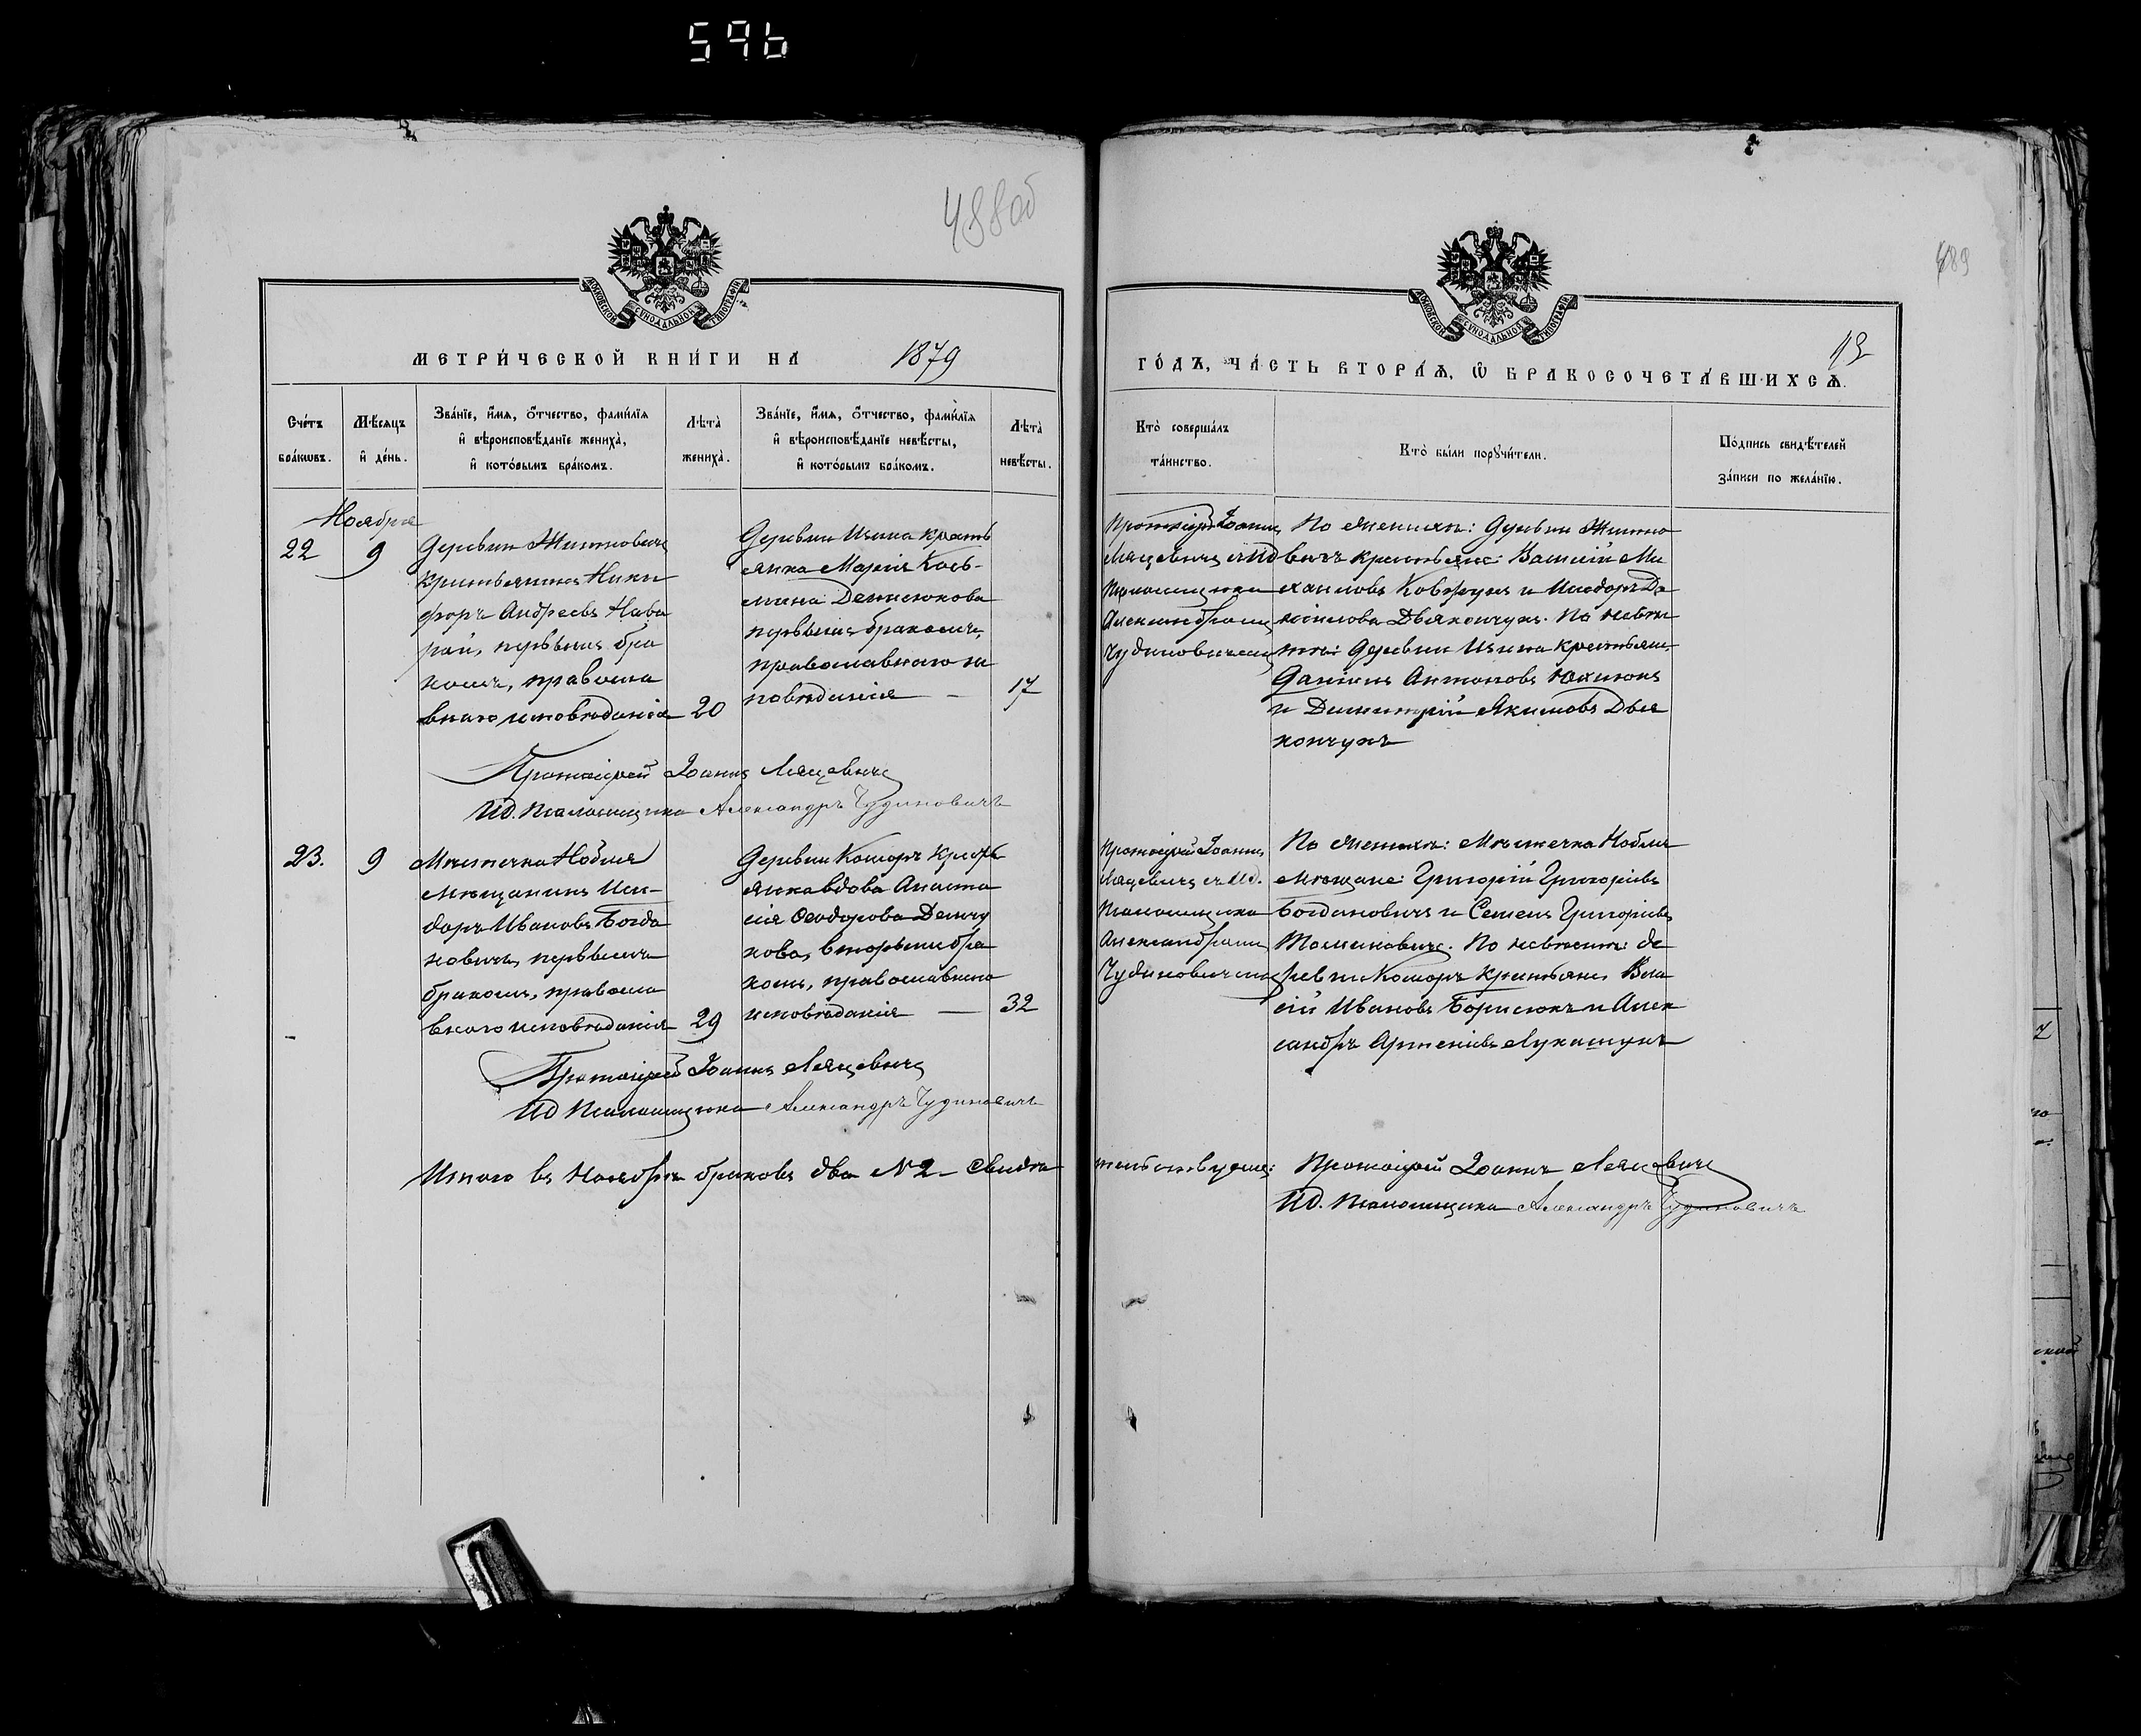 596
488об
489
МОСКОВСКОЙ СѴНОДАЛЬНОЙ ТИПОГРАФІИ
МОСКОВСКОЙ СѴНОДАЛЬНОЙ ТИПОГРАФІИ
МЕТРИ́ЧЕСКОЙ КНИ́ГИ НА 1879
ГО́ДЪ, ЧА́СТЬ ВТОРА́Ѧ, Ѡ҆ БРАКОСОЧЕТА́ВШИХСѦ.
Сче́тъ бра́кѡвъ.
Мѣ́сяцъ и҆ де́нь.
Зва́нїе, и҆́мя, ѻ҆́тчество, фами́лїя
и҆ вѣроисповѣ́данїе жениха̀,
и҆ кото́рымъ бра́комъ.
Лѣта̀ жениха̀.
Зва́нїе, и҆́мя, ѻ҆́тчество, фами́лїя
и҆ вѣроисповѣ́данїе невѣ́сты,
и҆ кото́рымъ бра́комъ.
Лѣта̀ невѣ́сты.
Кто̀ соверша́лъ
та́инство.
Кто̀ бы́ли поручи́тели.
По́дпись свидѣ́телей
за́писи по жела́нїю.
Ноября
22
9
Деревни Житковичъ
крестьянинъ Ники
форъ Андреевъ Нава
рай, первымъ бра
комъ, правосла
внаго исповѣданія
20
Деревни Цсина кресть
янка Марія Кось-
мина Денисюкова
первымъ бракомъ,
православнаго ис
повѣданія
17
Протоіерей Іоаннъ
Ляцевичъ съ ИД
Псаломщика
Александромъ
Чудиновичемъ
По женихѣ: Деревни Житко
вичъ крестьяне: Василій Ми
хаиловъ Ковтунъ и Исидоръ Да
ніилова Дьякончукъ. По невѣс
тѣ: Деревни Цсина крестьяне
Даніилъ Антоновъ Юхнюкъ
и Димитрій Якимовъ Дья
кончукъ
Протоіерей Іоаннъ Ляцевичъ
ИД. Псаломщика Александръ Чудиновичъ
23.
9
Мѣстечка Нобля
мѣщанинъ Иси-
доръ Ивановъ Богда
новичъ, первымъ
бракомъ, правосла
внаго исповѣданія
29
Деревни Коморъ кресть
янка вдова Анаста
сія Ѳеодорова Демчу
кова, вторымъ бра
комъ, православнаго
исповѣданія
32
Протоіерей Іоаннъ
Ляцевичъ съ ИД.
Псаломщика
Александромъ
Чудиновичемъ
По женихѣ: Мѣстечка Нобля
мѣщане: Григорій Григорьевъ
Богдановичъ и Семенъ Григорьевъ
. По невѣстѣ: де
ревни Коморъ крестьяне Вла
сій Ивановъ Борисюкъ и Алек
сандръ Арсеніевъ Лукашукъ
Протоіерей Іоаннъ Ляцевичъ
ИД Псаломщика Александръ Чудиновичъ
Итого въ Ноябрѣ браковъ два №2 – Свидѣ
тельствуемъ: Протоіерей Іоаннъ Ляцевичъ
ИД. Псаломщика Александръ Чудиновичъ